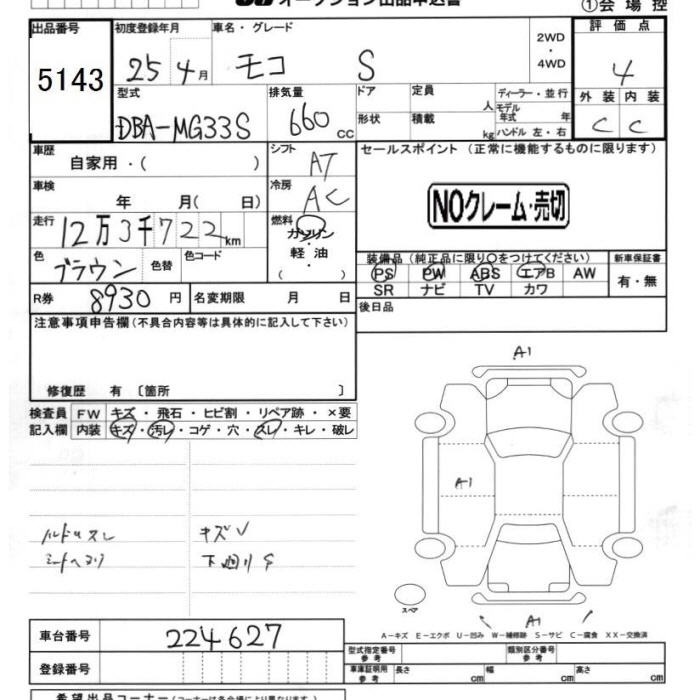 オークション出品申込書
①会場控
出品番号
5143
初度登録年月
25年4月
車名・グレード
モコ S
2WD
・
4WD
評価点
4
外装 内装
C C
型式
DBA-MG33S
排気量
660 cc
ドア
定員 人
形状
積載 kg
ディーラー・並行
モデル年式 年
ハンドル 左・右
車歴
自家用・( )
シフト
AT
車検
年 月( 日)
冷房
AC
走行
12万3千722km
燃料
ガソリン
・
軽油
( )
色
ブラウン
色替
色コード
R券 8930円
名変期限 月 日
セールスポイント (正常に機能するものに限ります)
NOクレーム・売切
装備品 (純正品に限り○をつけてください)
PS PW ABS エアB AW
SR ナビ TV カワ
新車保証書
有・無
後日品
注意事項申告欄(不具合内容等は具体的に記入して下さい)
修復歴 有 〔箇所 〕
検査員記入欄
FW キズ・飛石・ヒビ割・リペア跡・×要
内装 キズ・汚レ・コゲ・穴・スレ・キレ・破レ
ハンドルスレ
シートヘタリ
キズV
下廻りS
A1
A1
A1
スペア
A-キズ E-エクボ U-凹み W-補修跡 S-サビ C-腐食 XX-交換済
車台番号
224627
登録番号
型式指定番号
参考
類別区分番号
参考
車庫証明用
参考
長さ cm 幅 cm 高さ cm
希望出品コーナー(コーナーは各会場により異なります)